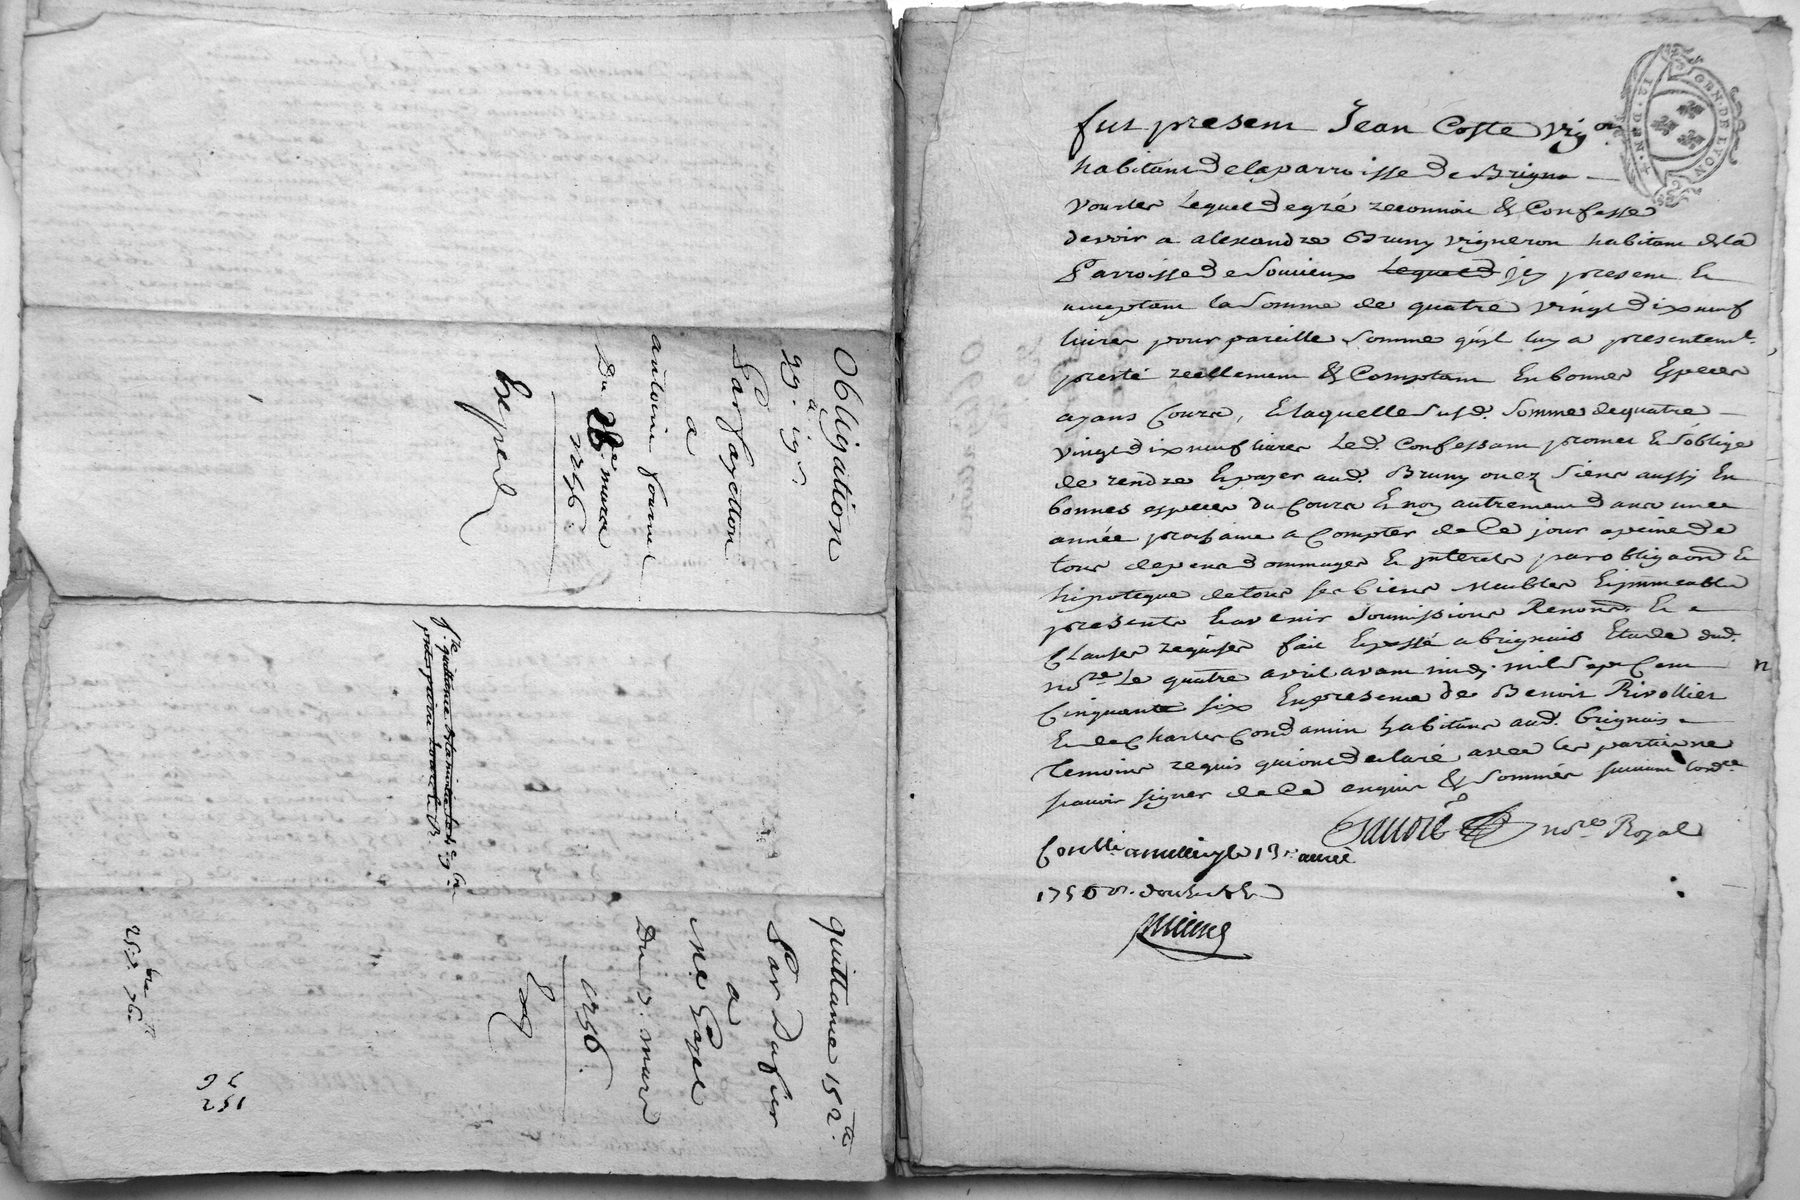 Obligation
a
Par fayetton
a
antoine fournel
Du mars
1756.
Exped
quittance
quittance 152
Par Dufier
a
Me Gayet
Du 7. mars
1756.
Exp
76
152
GEN. DE LYON
fut present Jean Coste vigon
habitant de la parroisse de Brigna
Vousles Lequel de gré reconnoit & Confesse
devoir a alexandre Bruny vigneron habitant de la
Parroisse de Soucieux Lequel icy present et
acceptant la Somme de quatre vingt dix neuf
livres pour pareille Somme qu'il luy a presentemt.
presté réellement & Comptant En bonnes Especes
ayans Cours, Et laquelle susd. Somme de quatre
vingt dix neuf livres Led. Confessant promet Et s'oblige
de rendre Et payer aud. Bruny ou ez siens aussy En
bonnes especes du Cours Et non autrement dans une
année prochaine a Compter de Ce jour a peine de
tous depens dommages Et interets par obligaon Et
hipoteque de tous ses biens Meubles Et immeubles
presents Et avenir Soumissions Renonc. Et
Clauses requises fait Et passé a brignais Etude dud.
nore Le quatre avril avant midy mil Sept Cent
Cinquante six En presence de Benoit Rivollier
Et de Charles Condamin habitans aud. brignais
temoins requis qui ont declaré avec les parties ne
scavoir signer de Ce enquis & Sommés suivant lordce
nore Royal
Conllé a millery le 13 avril
1756 douze s